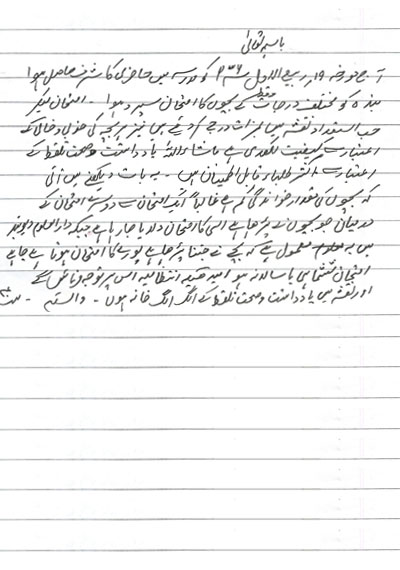 باسمہ تعالیٰ
آج مورخہ ۱۹ ربیع الاول کو مدرسہ میں حاضری کا شرف حاصل ہوا
بندہ کو مختلف درجات حفظ کے بچوں کا امتحان سپرد ہوا ۔ امتحان لیکر
حسب استعداد نقشہ میں نمبرات درج کردئیے ہیں نیز ہر بچہ کی خوبی و خامی کے
اعتبار سے کیفیت لکھدی ہے ماشاء اللہ یادداشت و صحت تلفظ کے
اعتبار سے اکثر طلبہ قابل اطمینان ہیں ۔ یہ بات دیکھنے میں آئی
کہ بچوں کی مقدار خواندگی کم ہے غالباً ایک امتحان سے دوسرے امتحان کے
درمیان جو بچوں نے پڑھا ہے اسی کا امتحان دلایا جارہا ہے جبکہ دارالعلوم دیوبند
میں یہ معمول ہے کہ بچے نے جتنا پڑھا ہے پورے کا امتحان ہوتا ہے چاہے
امتحان ششماہی یا سالانہ ہو امید کہ انتظامیہ اس پر توجہ فرمائیں گے
اور نقشہ میں یادداشت و صحت تلفظ کے الگ الگ خانہ ہوں ۔ والسلام